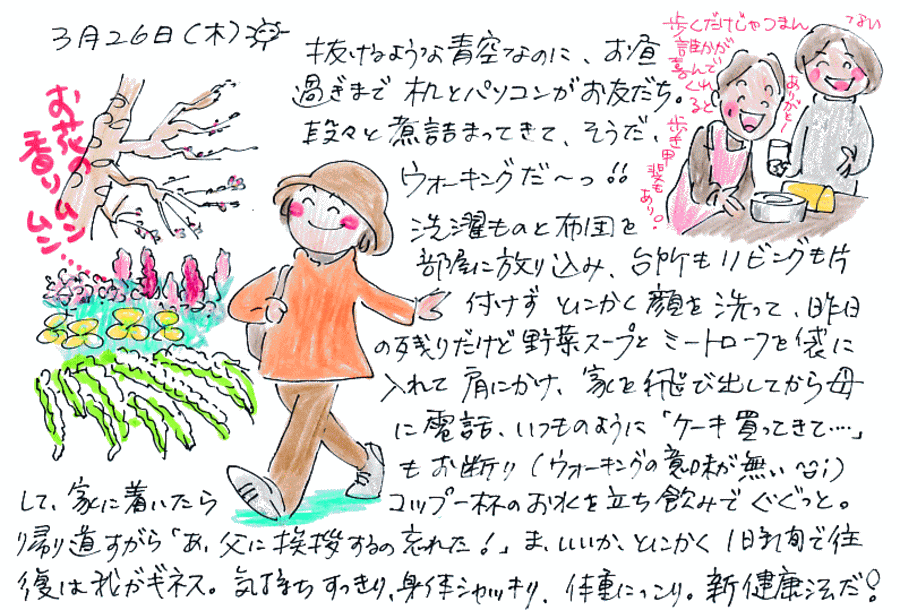 3月26日(木)
抜けるような青空なのに、お昼
過ぎまで 机とパソコンがお友だち。
段々と煮詰まってきて、そうだ、
ウォーキングだ〜っ!!
洗濯ものと布団を
部屋に放り込み、台所もリビングも片
付けず とにかく顔を洗って、昨日
の残りだけど野菜スープとミートローフを袋に
入れて 肩にかけ、家を飛び出してから母
に電話、いつものように「ケーキ買ってきて….」
もお断り(ウォーキングの意味が無い
して、家に着いたら コップ一杯のお水を立ち飲みでぐぐっと。
帰り道すがら「あ、父に挨拶するの忘れた!」ま、いいか、とにかく 1時間で往
復は我がギネス。気持ちすっきり、身体シャッキリ、体重にっこり。新健康法だ!
お花の
香り
ムンムン…
歩くだけじゃつまん
ない
誰かが
喜んで
くれ
ると
歩き甲
斐も
あり。
ありがとー